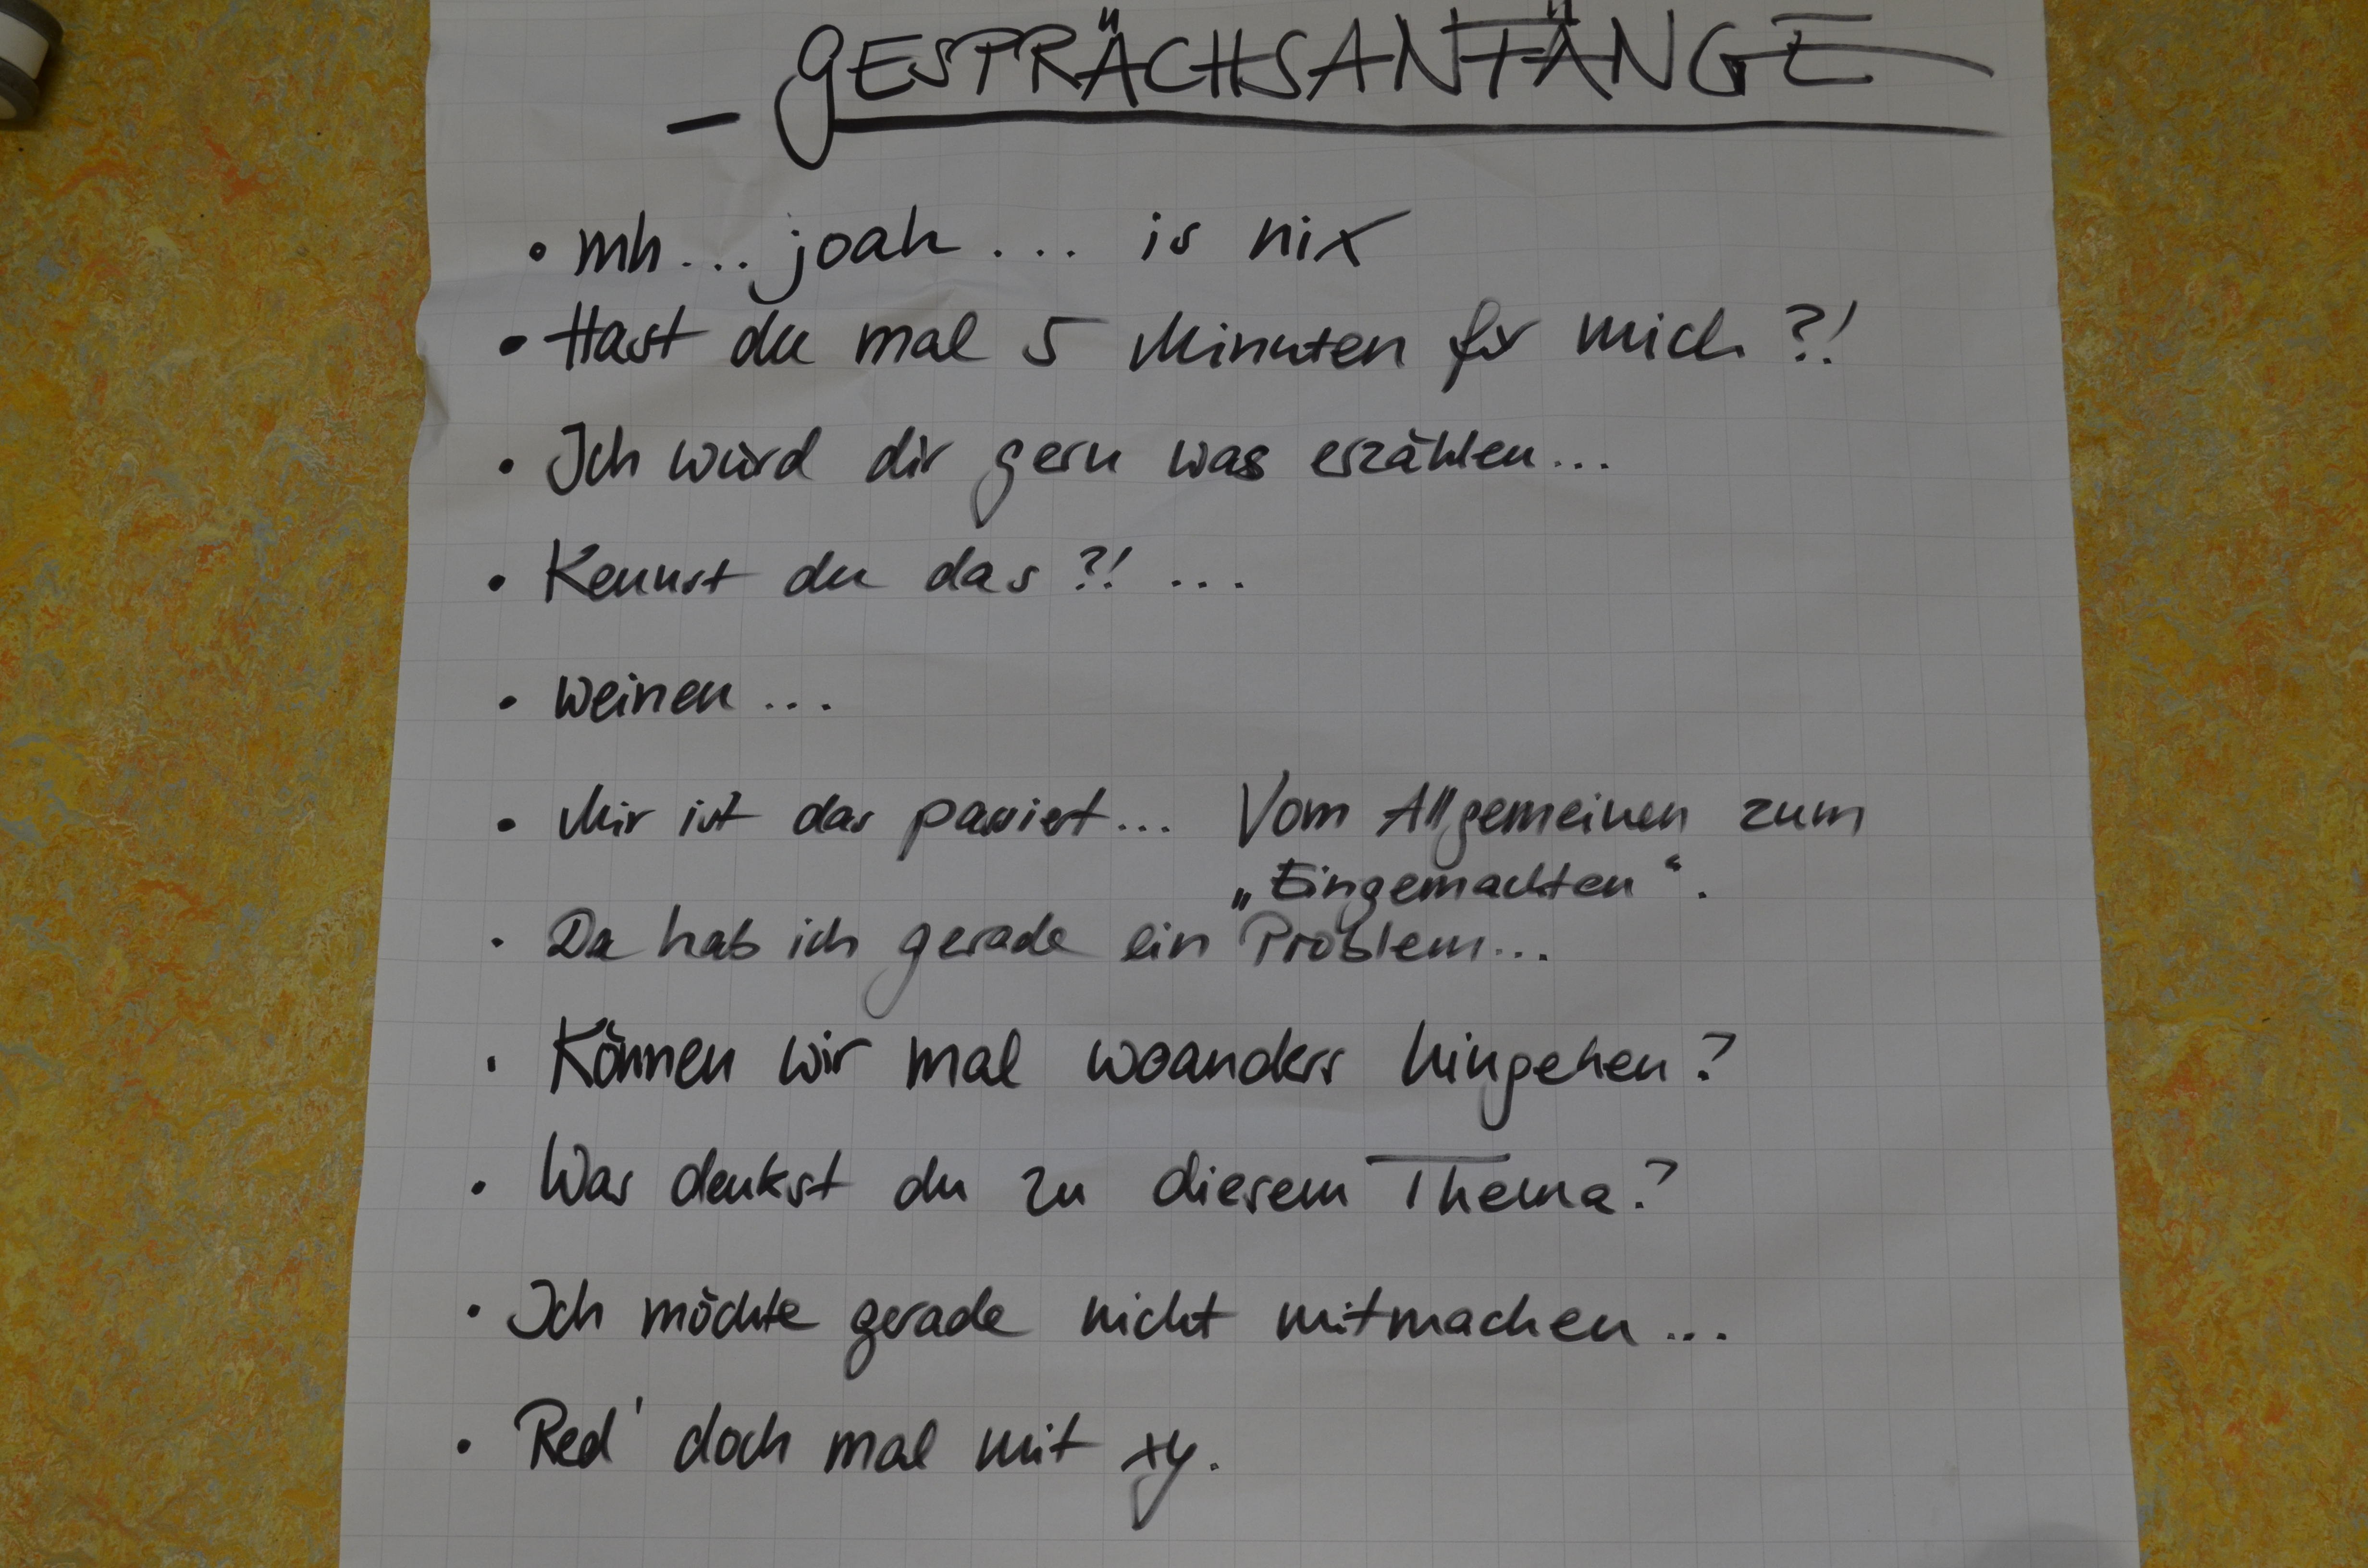 - GESPRÄCHSANFÄNGE
• mh... joah... is nix
• Hast du mal 5 Minuten für mich?!
• Ich würd dir gern was erzählen...
• Kennst du das?! ...
• weinen...
• Mir ist das passiert... Vom Allgemeinen zum
„Eingemachten“.
• Da hab ich gerade ein Problem...
• Können wir mal woanders hingehen?
• Was denkst du zu diesem Thema?
• Ich möchte gerade nicht mitmachen...
• Red' doch mal mit xy.